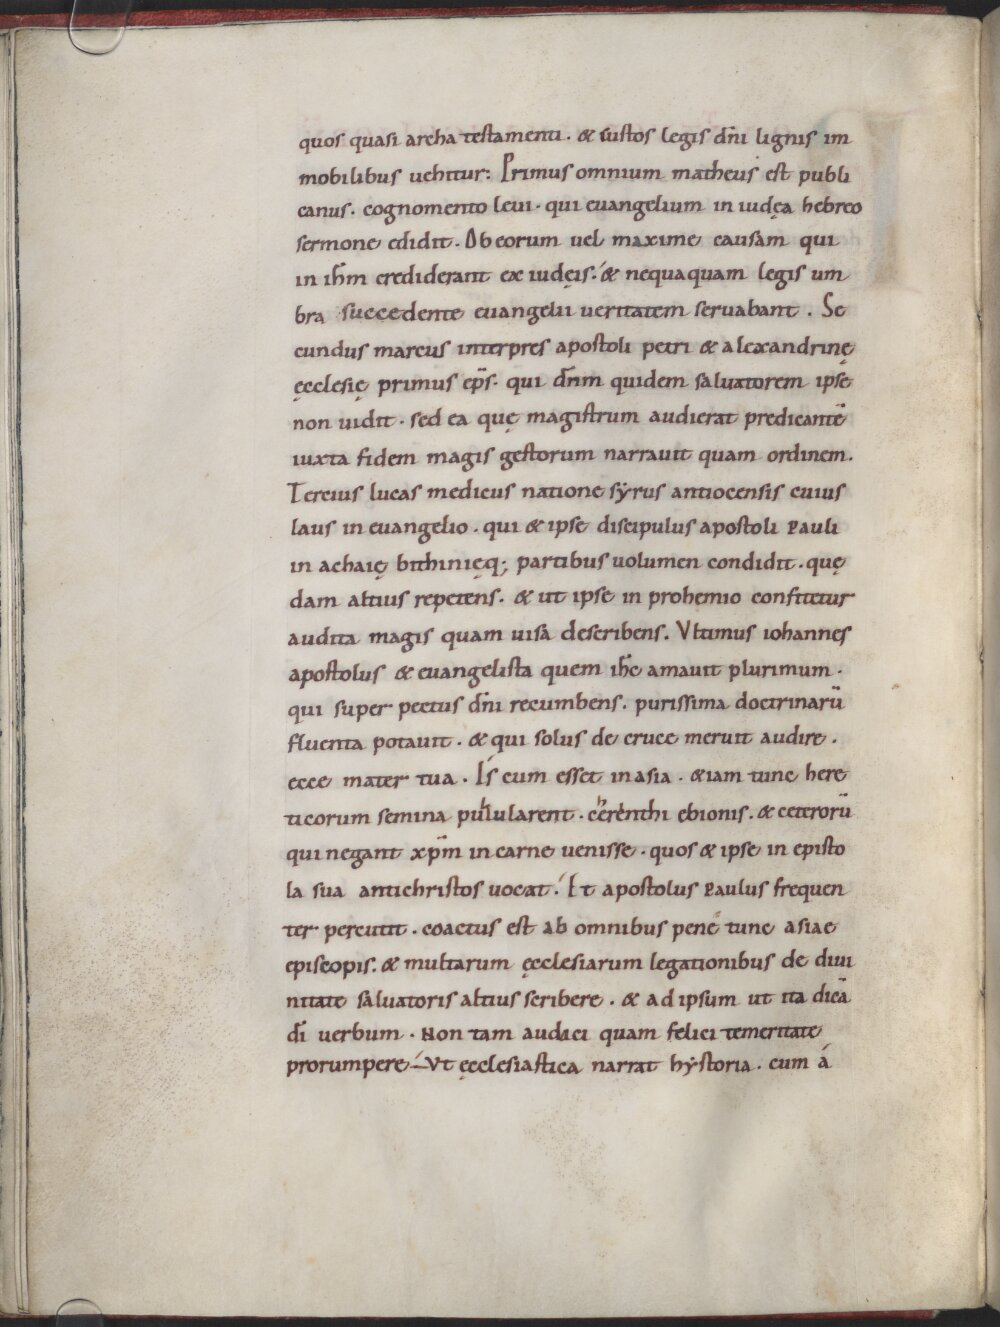 quos quasi archa testamenti. & custos legis dñi lignis im
mobilibus uehitur: Primus omnium matheus est publi
canus. cognomento leui. qui euangelium in iudęa hebreo
sermone edidit. Ob eorum uel maxime causam qui
in ihm̄ crediderant ex iudęis. & nequaquam legis um
bra succedente euangelii ueritatem seruabant. Se
cundus marcus interpres apostoli petri & alexandrinę
ęcclesię primus ep̄s. qui dn̄m quidem saluatorem ipse
non uidit. sed ea quę magistrum audierat predicantē
iuxta fidem magis gestorum narrauit quam ordinem.
Tercius lucas medicus natione syrus antiocensis cuius
laus in euangelio. qui & ipse discipulus apostoli Pauli
in achaię bithinięq; partibus uolumen condidit. quę
dam altius repetens. & ut ipse in prohemio confitetur
audita magis quam uisa describens. Vltimus iohannes
apostolus & euangelista quem ihc̄ amauit plurimum.
qui super pectus dñi recumbens. purissima doctrinarū
fluenta potauit. & qui solus de cruce meruit audire.
ecce mater tua. Is cum esset in asia. & iam tunc here
ticorum semina pullularent. cherenthi ebionis. & ceterorū
qui negant xp̄m in carne uenisse. quos & ipse in episto
la sua antichristos uocat. Et apostolus Paulus frequen
ter percutit. coactus est ab omnibus pene tunc asiae
episcopis. & multarum ęcclesiarum legationibus de diui
nitate saluatoris altius scribere. & ad ipsum ut ita dicā
dī uerbum. Non tam audaci quam felici temeritate
prorumpere. Vt ęcclesiastica narrat hystoria. cum á